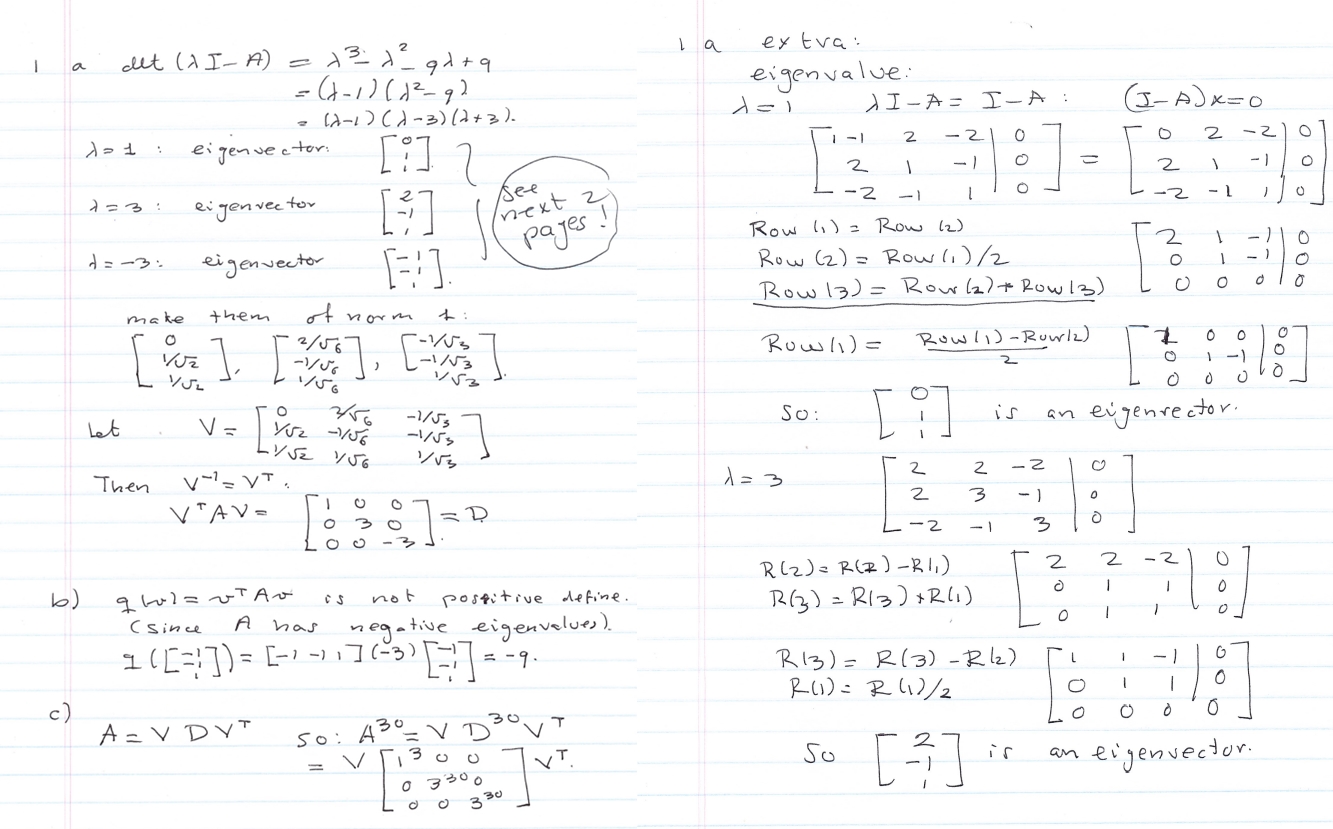 1 a det (λI-A) = λ³ - λ² - 9λ + 9
= (λ-1)(λ²-9)
= (λ-1)(λ-3)(λ+3).
λ=1 : eigenvector: [0 1 1]
λ=3 : eigenvector [2 -1 1]
λ=-3: eigenvector [-1 -1 1].
see next 2 pages!
make them of norm 1:
[0 1/√2 1/√2], [2/√6 -1/√6 1/√6], [-1/√3 -1/√3 1/√3].
Let V = [0 2/√6 -1/√3
1/√2 -1/√6 -1/√3
1/√2 1/√6 1/√3]
Then V⁻¹ = Vᵀ.
VᵀAV = [1 0 0
0 3 0
0 0 -3] = D.
b) q(v) = vᵀAv is not possitive define.
(since A has negative eigenvalues).
q([-1 -1 1]) = [-1 -1 1](-3)[-1 -1 1] = -9.
c)
A = V D Vᵀ so: A³⁰ = V D³⁰ Vᵀ
= V [1³ 0 0
0 3³⁰ 0
0 0 3³⁰] Vᵀ.
1 a extra:
eigenvalue:
λ=1 λI-A = I-A : (I-A)x=0
[1-1 2 -2 | 0
2 1 -1 | 0
-2 -1 1 | 0] = [0 2 -2 | 0
2 1 -1 | 0
-2 -1 1 | 0]
Row (1) = Row (2)
Row (2) = Row(1)/2
Row (3) = Row(2) + Row(3)
[2 1 -1 | 0
0 1 -1 | 0
0 0 0 | 0]
Row(1) = Row(1)-Row(2) / 2
[1 0 0 | 0
0 1 -1 | 0
0 0 0 | 0]
So: [0 1 1] is an eigenvector.
λ=3 [2 2 -2 | 0
2 3 -1 | 0
-2 -1 3 | 0]
R(2) = R(2) - R(1)
R(3) = R(3) + R(1)
[2 2 -2 | 0
0 1 1 | 0
0 1 1 | 0]
R(3) = R(3) - R(2)
R(1) = R(1)/2
[1 1 -1 | 0
0 1 1 | 0
0 0 0 | 0]
So [2 -1 1] is an eigenvector.